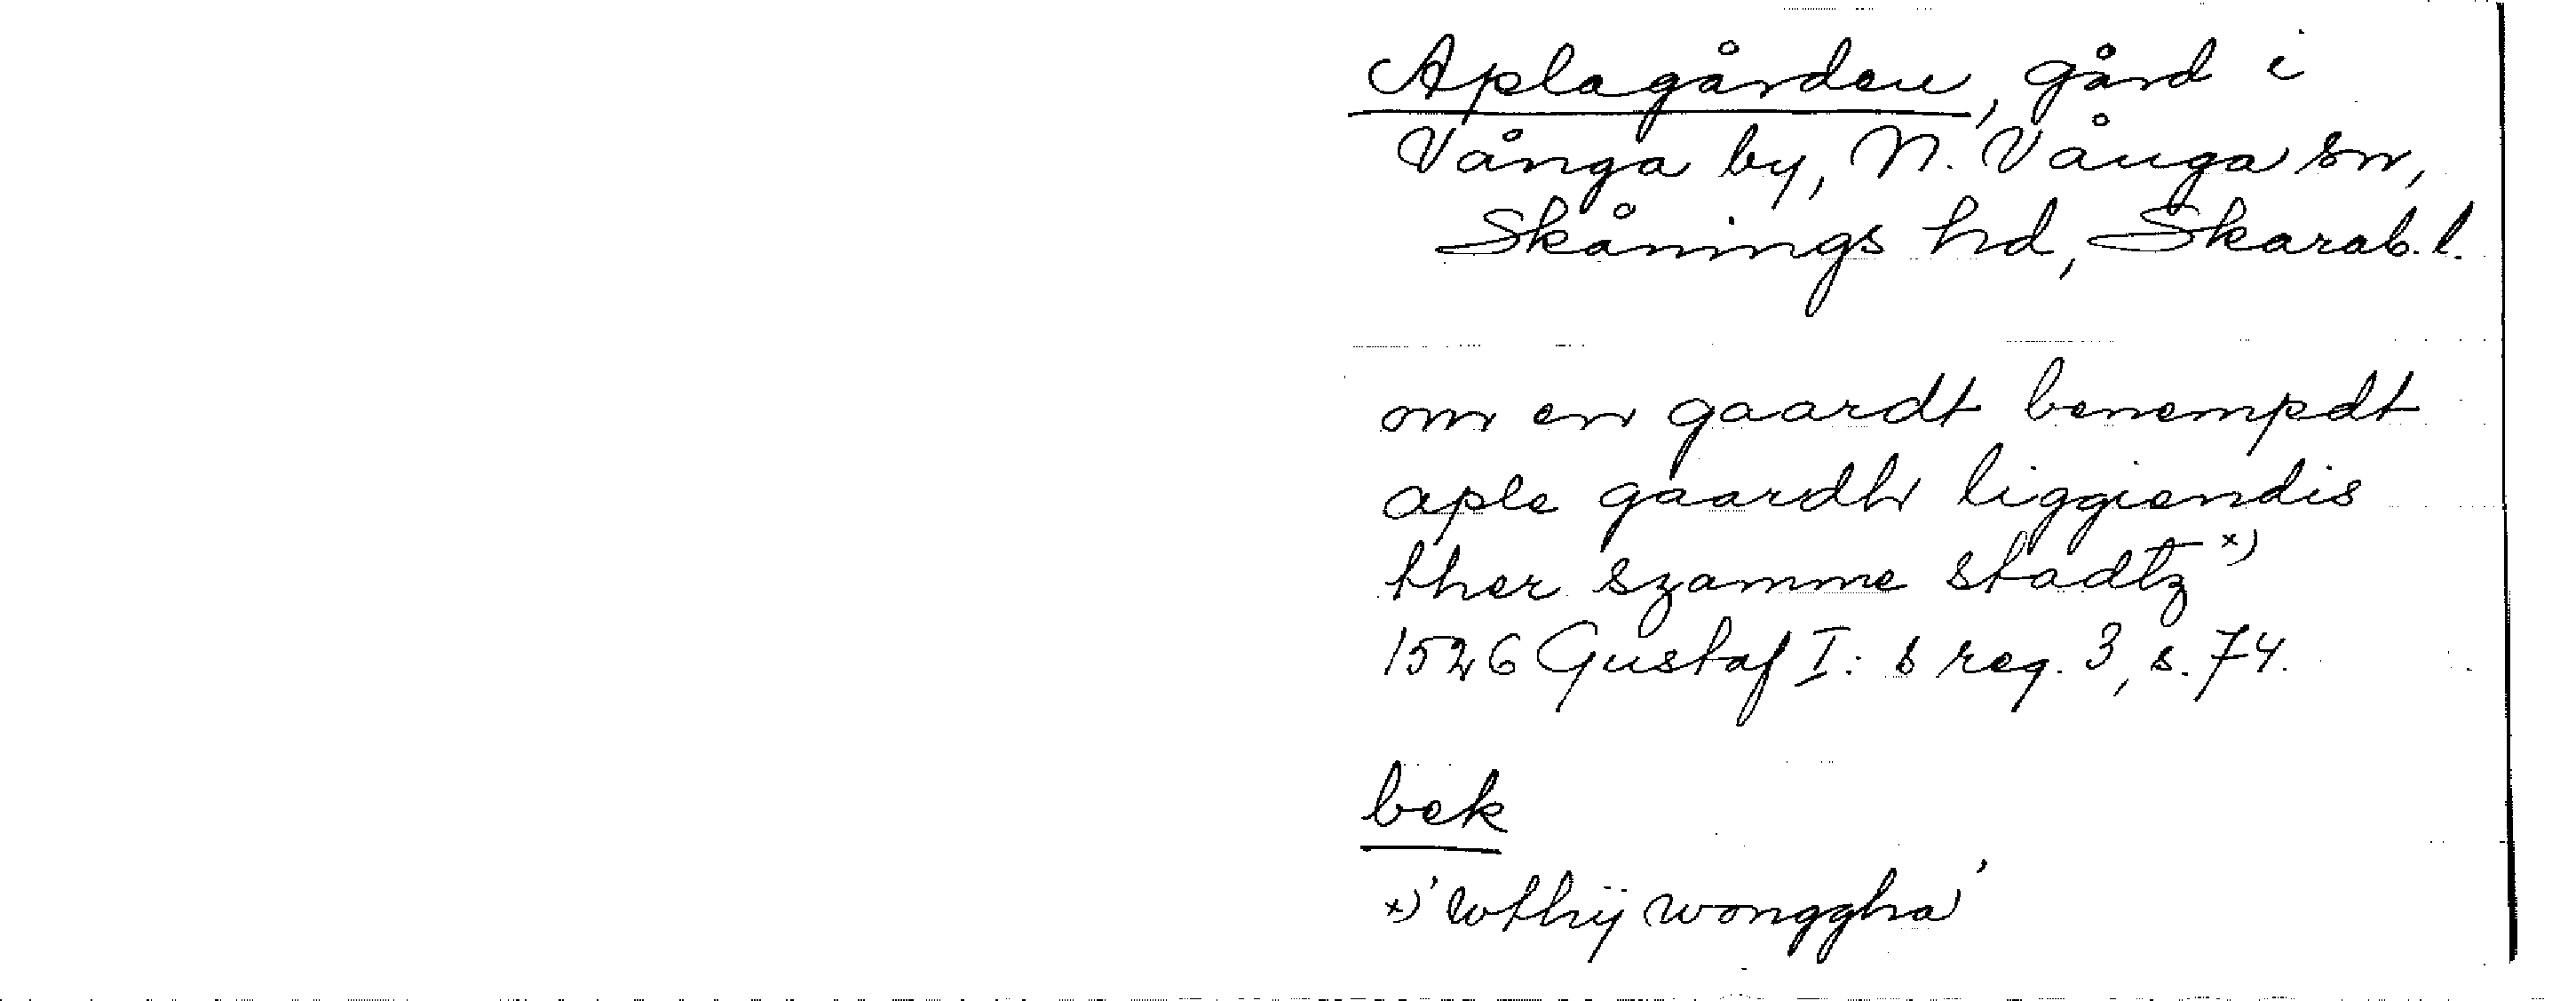 Aplagården, gård i
Vånga by, N. Vånga sn,
Skånings hd, Skarab. l.
om en gaardt benempdt
aple gaardh liggiendis
ther szamme stadtz x)
1526 Gustaf I:s reg. 3, s. 74.
bek
x) 'wthij wonggha'